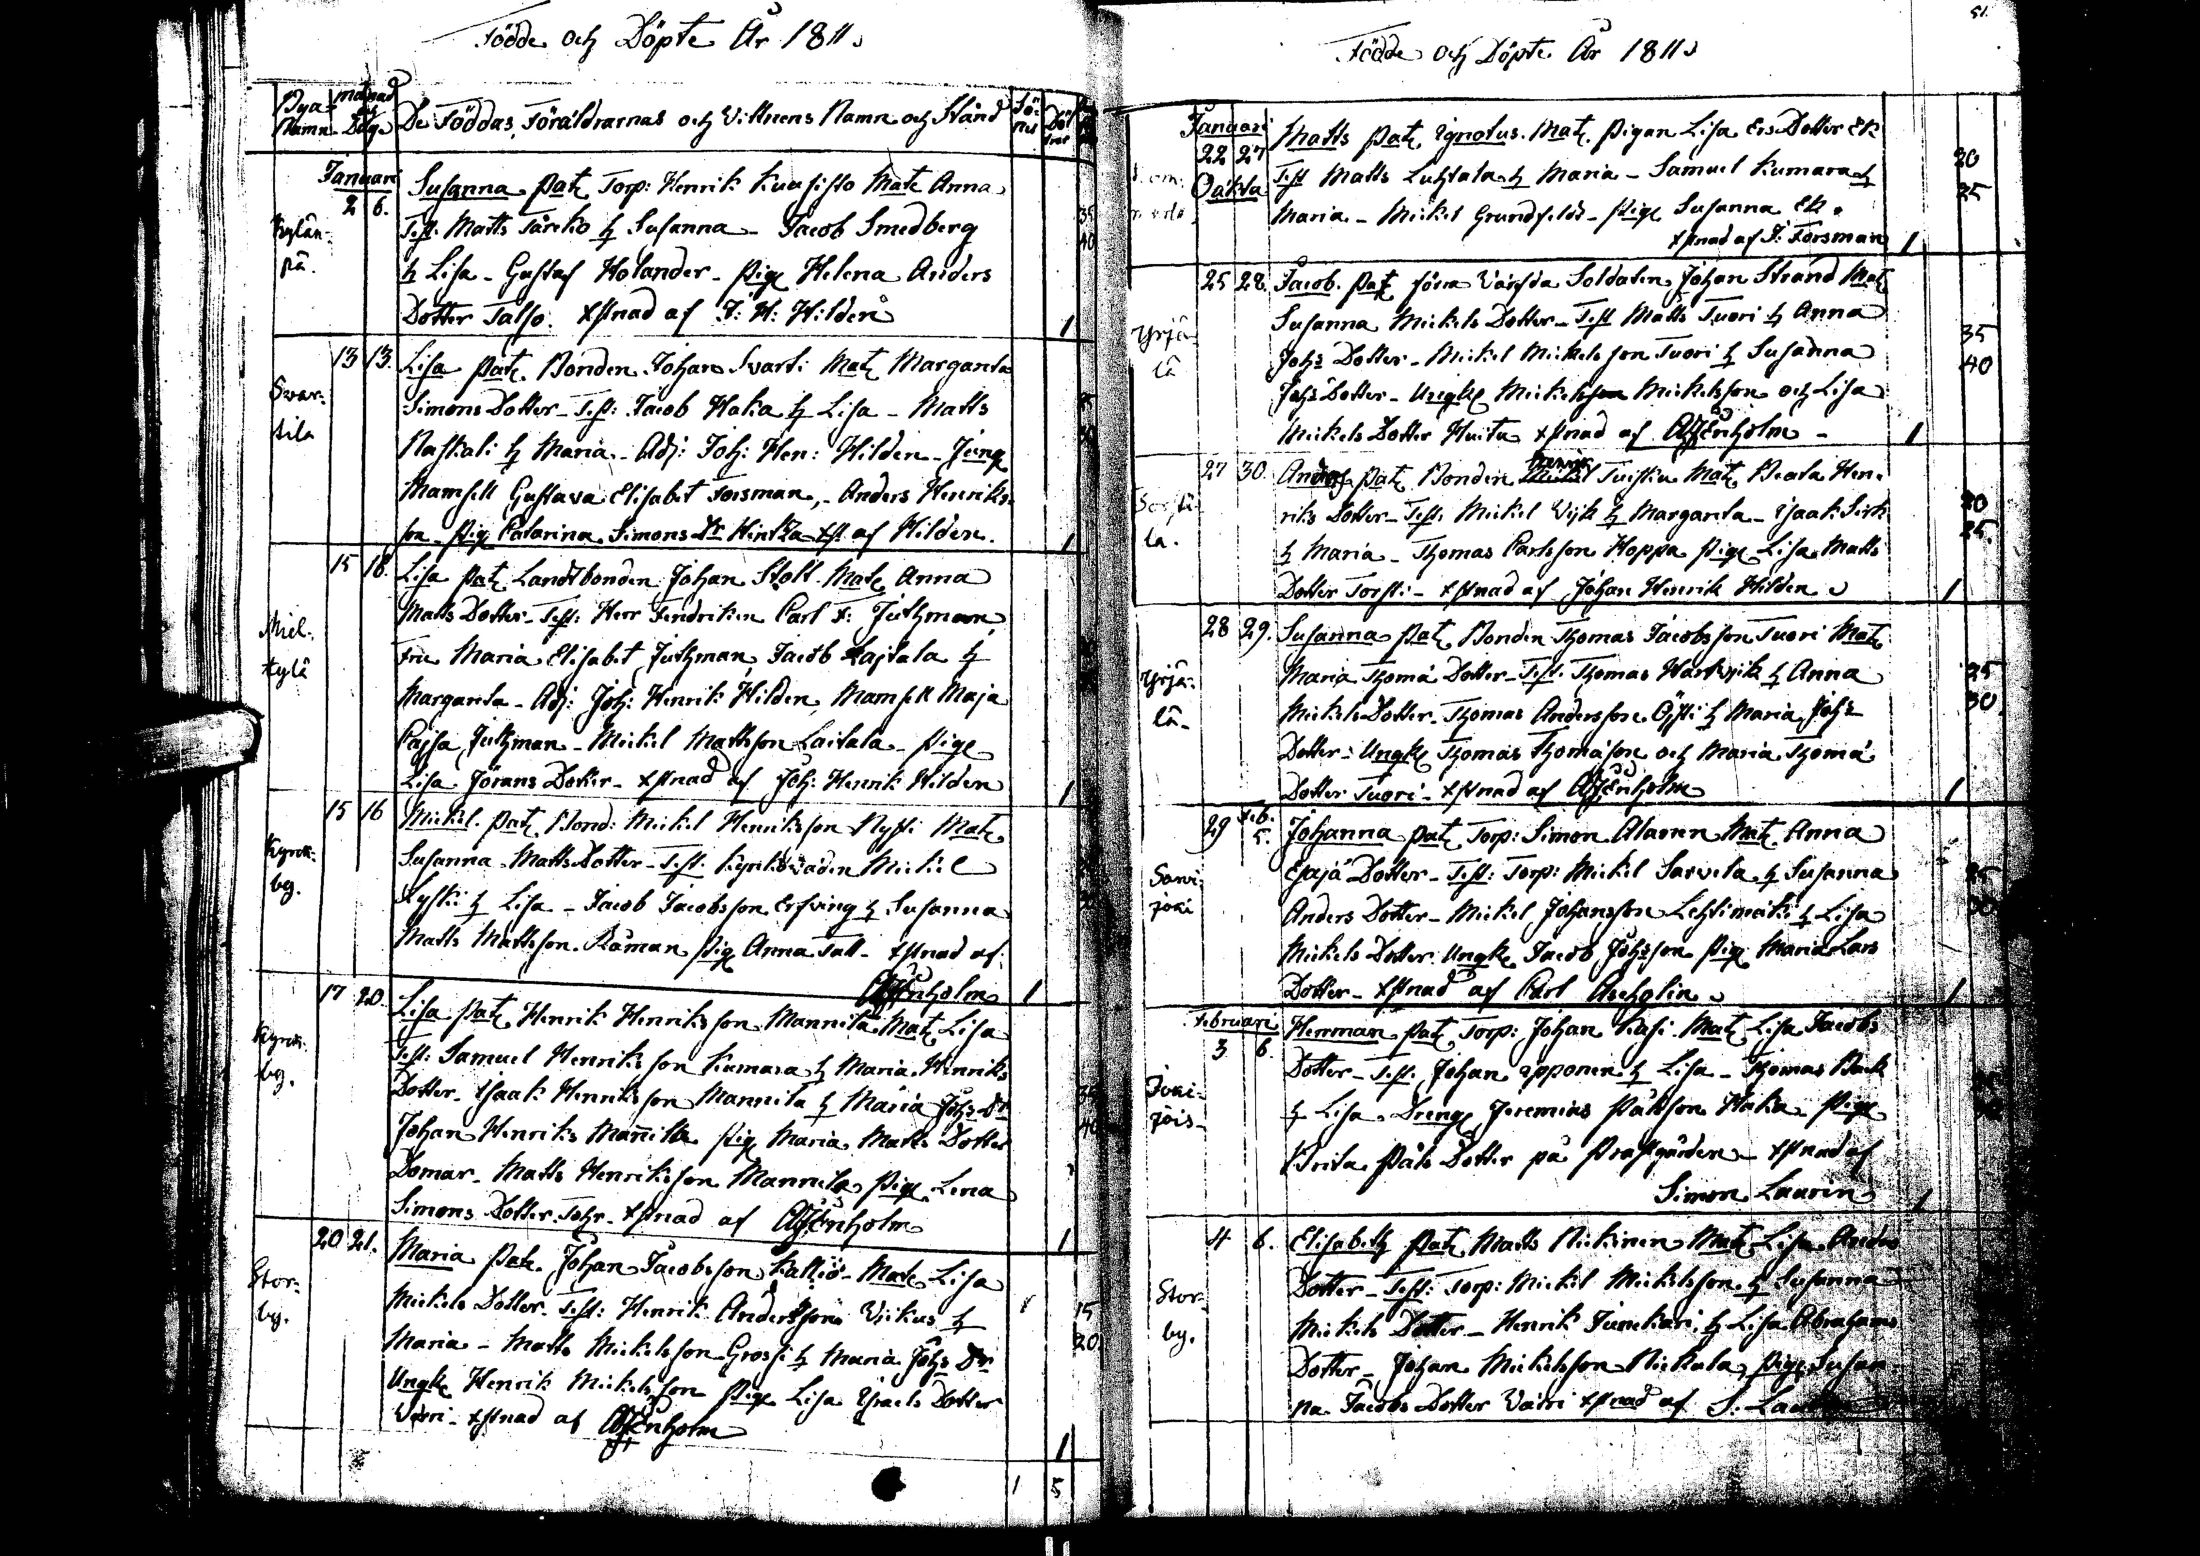 Födde och Döpte År 1811.
Byarnas Namn
månad och Dag
De Föddas, Föräldrarnas och Vittnens Namn och Stånd
Söner
Döttrar
Januari
2 6.
Kylänpä.
Susanna Pat. Torp: Henrik Kuusisto Mat. Anna
Test. Matts Täreko h Susanna - Jacob Smedberg
h Lisa - Gustaf Holander - pig. Helena Anders
Dotter Talso. xstnad af J: H: Hildén 1
35
40
Svartila
13 13.
Lisa Pat. Bonden Johan Svarti Mat. Margareta
Simons Dotter - Test: Jacob Haka h Lisa - Matts
Raskali h Maria - Adj: Joh: Hen: Hilden - Jung
Mamsell Gustava Elisabet Forsman, - Anders Henriks-
son - Pig Catarina Simons Dr Hintza xst af Hilden. 1
Mielkylä
15 18.
Lisa Pat. Landtbonden Johan Stolt Mat. Anna
Matts Dotter - Test: Herr Fendriken Carl F: Jutzman,
Fru Maria Elisabet Jutzman, Jacob Lajtala h
Margareta - Adj: Joh: Henrik Hilden, Mamsell Maja
Cajsa Jutzman - Mickel Mattsson Laitala - Pige
Lisa Jörans Dotter - xstnad af Joh: Henrik Hilden 1
Kyrckby.
15 16
Mickel. Pat. Bond: Mickel Henriksson Rysti Mat.
Susanna Matts Dotter - Test. Kyrkoväden Mickel
Kysti h Lisa - Jacob Jacobsson Erfving h Susanna
Matts Mattsson Råman pig Anna Tall - xstnad af
Assenholm 1
Kyrckby.
17 20.
Lisa Pat. Henrik Henriksson Mannila Mat. Lisa
Test: Samuel Henriksson Kumara h Maria Henriks
Dotter - Isaak Henriksson Mannila h Maria Johs Dr
Johan Henriks Mannilla pig Maria Matts Dotter
Domar - Matts Henriksson Mannila Pige Lena
Simons Dotter Tohr - xstnad af Assenholm 1
35
40
Storby.
20 21.
Maria Pat. Johan Jacobsson Kallio - Mat. Lisa
Mickels Dotter. Test: Henrik Andersson Vickus h
Maria - Matts Mickelsson Grossi h Maria Johs Dr
Ungk. Henrik Mickelsson Pige Lisa Israels Dotter
Vävri - xstnad af Assenholm 1
15
20
1 5
51.
Födde och Döpte År 1811.
Januari
22 27
Oäkta
Matts Pat. Ignotus. Mat. Pigan Lisa Ers Dotter Ek
Test Matts Luhtala h Maria - Samuel Kumara h
Maria - Mickel Grundfeldt - Pige Susanna Ek.
xstnad af J: Forsman 1
20
25
Yrjälä
25 28.
Jacob. Pat. förra Värfda Soldaten Johan Strand Mat.
Susanna Mickels Dotter - Test Matts Tuori h Anna
Johs Dotter - Mickel Mickelsson Tuori h Susanna
Johs Dotter - Ungk. Mickelsson Mickelsson och Lisa
Mickels Dotter Huitu xstnad af Assenholm - 1
35
40
Sorftila.
27 30.
Anders Pat. Bonden Henrik Tuisku Mat. Beata Hen-
riks Dotter - Test: Mickel Vijk h Margareta - Isaak Sirk
h Maria - Thomas Carlsson Hoppa Pige Lisa Matts
Dotter Torsti - xstnad af Johan Henrik Hilden 1
20
25.
Yrjälä.
28 29.
Susanna Pat. Bonden Thomas Jacobsson Tuori Mat.
Maria Thoma Dotter - Test. Thomas Harkvik h Anna
Mickels Dotter - Thomas Andersson Öfsti h Maria Johs
Dotter - Ungk. Thomas Thomason och Maria Thoma
Dotter Tuori - xstnad af Assenholm 1
25
30
Savijoki
29 Feb. 5.
Johanna Pat. Torp: Simon Alaonn Mat. Anna
Esajä Dotter - Test: Torp: Mickel Sarvela h Susanna
Anders Dotter - Mickel Johansson Lehtimäki h Lisa
Mickels Dotter Ungk. Jacob Johsson Pig Maria Lars
Dotter - xstnad af Carl Ascholin 1
Februari
3 6.
Jokijois
Herrman Pat. Torp: Johan Kasi Mat. Lisa Jacobs
Dotter - Test. Johan Ipponen h Lisa - Thomas Back
h Lisa - Dreng. Jeremias Pålsson Haka Pige
Brita Påls Dotter på Prästgården - xstnad af
Simon Laurin 1
Storby.
4 6.
Elisabeth Pat. Matts Rickinen Mat. Lisa Anders
Dotter - Test: Torp: Mickel Mickelsson h Susanna
Mickels Dotter - Henrik Junnkari h Lisa Abrahams
Dotter - Johan Mickelsson Nickala, Pige Susan-
na Jacobs Dotter Vätri xstnad af S: Laurin